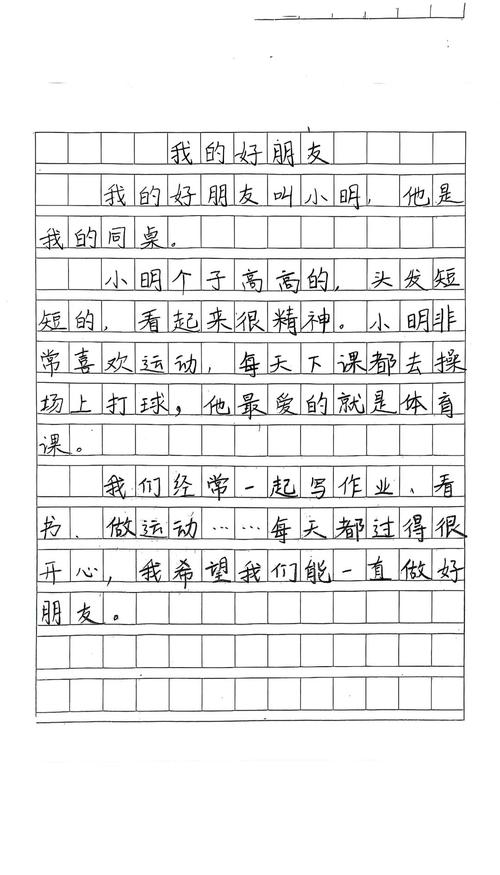 我的好朋友
我的好朋友叫小明，他是
我的同桌。
小明个子高高的，头发短
短的，看起来很精神。小明非
常喜欢运动，每天下课都去操
场上打球，他最爱的就是体育
课。
我们经常一起写作业、看
书、做运动……每天都过得很
开心，我希望我们能一直做好
朋友。